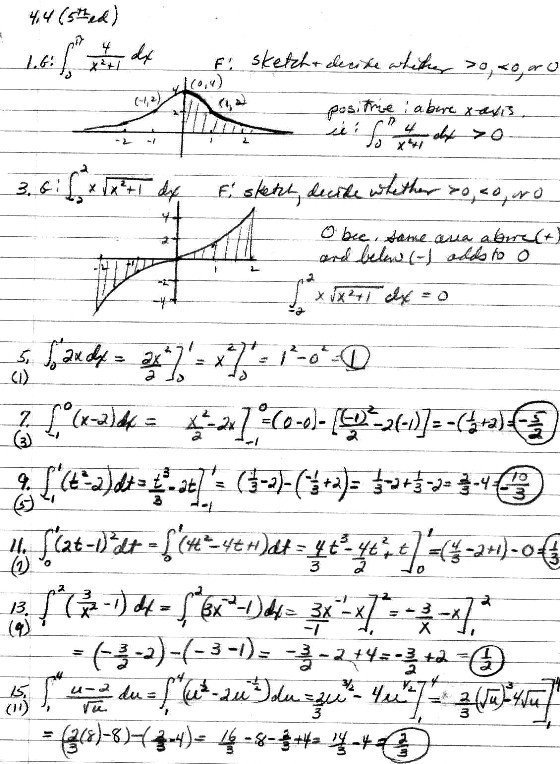 4.4 (5th ed)
1. G: ∫₀^π 4/(x²+1) dx F: sketch + decide whether >0, <0, or 0
(0,4)
(-1,2) (1,2)
4
2
-2 -1 1 2
positive: above x-axis.
ie: ∫₀^π 4/(x²+1) dx > 0
3. G: ∫₋₂² x√(x²+1) dx F: sketch, decide whether >0, <0, or 0
4
2
-2 -1 1 2
-2
-4
0 bec. same area above (+)
and below (-) adds to 0
∫₋₂² x√(x²+1) dx = 0
5. ∫₀¹ 2x dx = 2x²/2 ]₀¹ = x² ]₀¹ = 1² - 0² = 1
(1)
7. ∫₋₁⁰ (x-2) dx = x²/2 - 2x ]₋₁⁰ = (0-0) - [(-1)²/2 - 2(-1)] = -(1/2 + 2) = -5/2
(3)
9. ∫₋₁¹ (t²-2) dt = t³/3 - 2t ]₋₁¹ = (1/3 - 2) - (-1/3 + 2) = 1/3 - 2 + 1/3 - 2 = 2/3 - 4 = -10/3
(5)
11. ∫₀¹ (2t-1)² dt = ∫₀¹ (4t² - 4t + 1) dt = 4/3 t³ - 4t²/2 + t ]₀¹ = (4/3 - 2 + 1) - 0 = 1/3
(7)
13. ∫₁² (3/x² - 1) dx = ∫₁² (3x⁻² - 1) dx = 3x⁻¹/-1 - x ]₁² = -3/x - x ]₁²
(9)
= (-3/2 - 2) - (-3 - 1) = -3/2 - 2 + 4 = -3/2 + 2 = 1/2
15. ∫₁⁴ (u-2)/√u du = ∫₁⁴ (u^(1/2) - 2u^(-1/2)) du = 2/3 u^(3/2) - 4u^(1/2) ]₁⁴ = 2/3 (√u)³ - 4√u ]₁⁴
(11)
= (2/3 (8) - 8) - (2/3 - 4) = 16/3 - 8 - 2/3 + 4 = 14/3 - 4 = 2/3